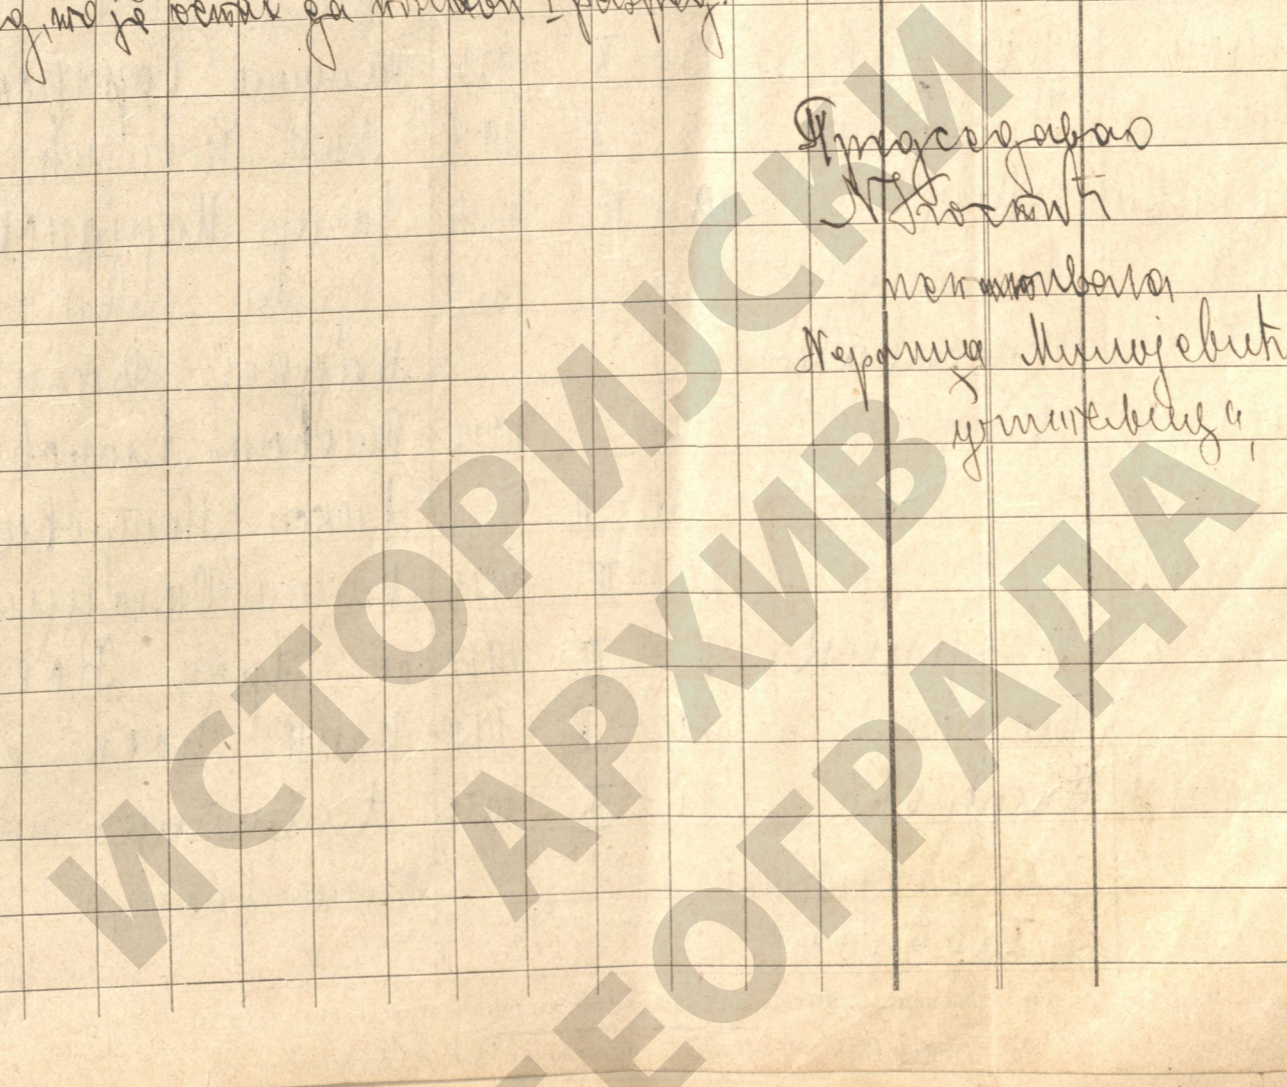 је остао да I разред.
Председавао
Костић
Неранџа Милојевић
учитељица,
ИСТОРИЈСКИ
АРХИВ
БЕОГРАДА